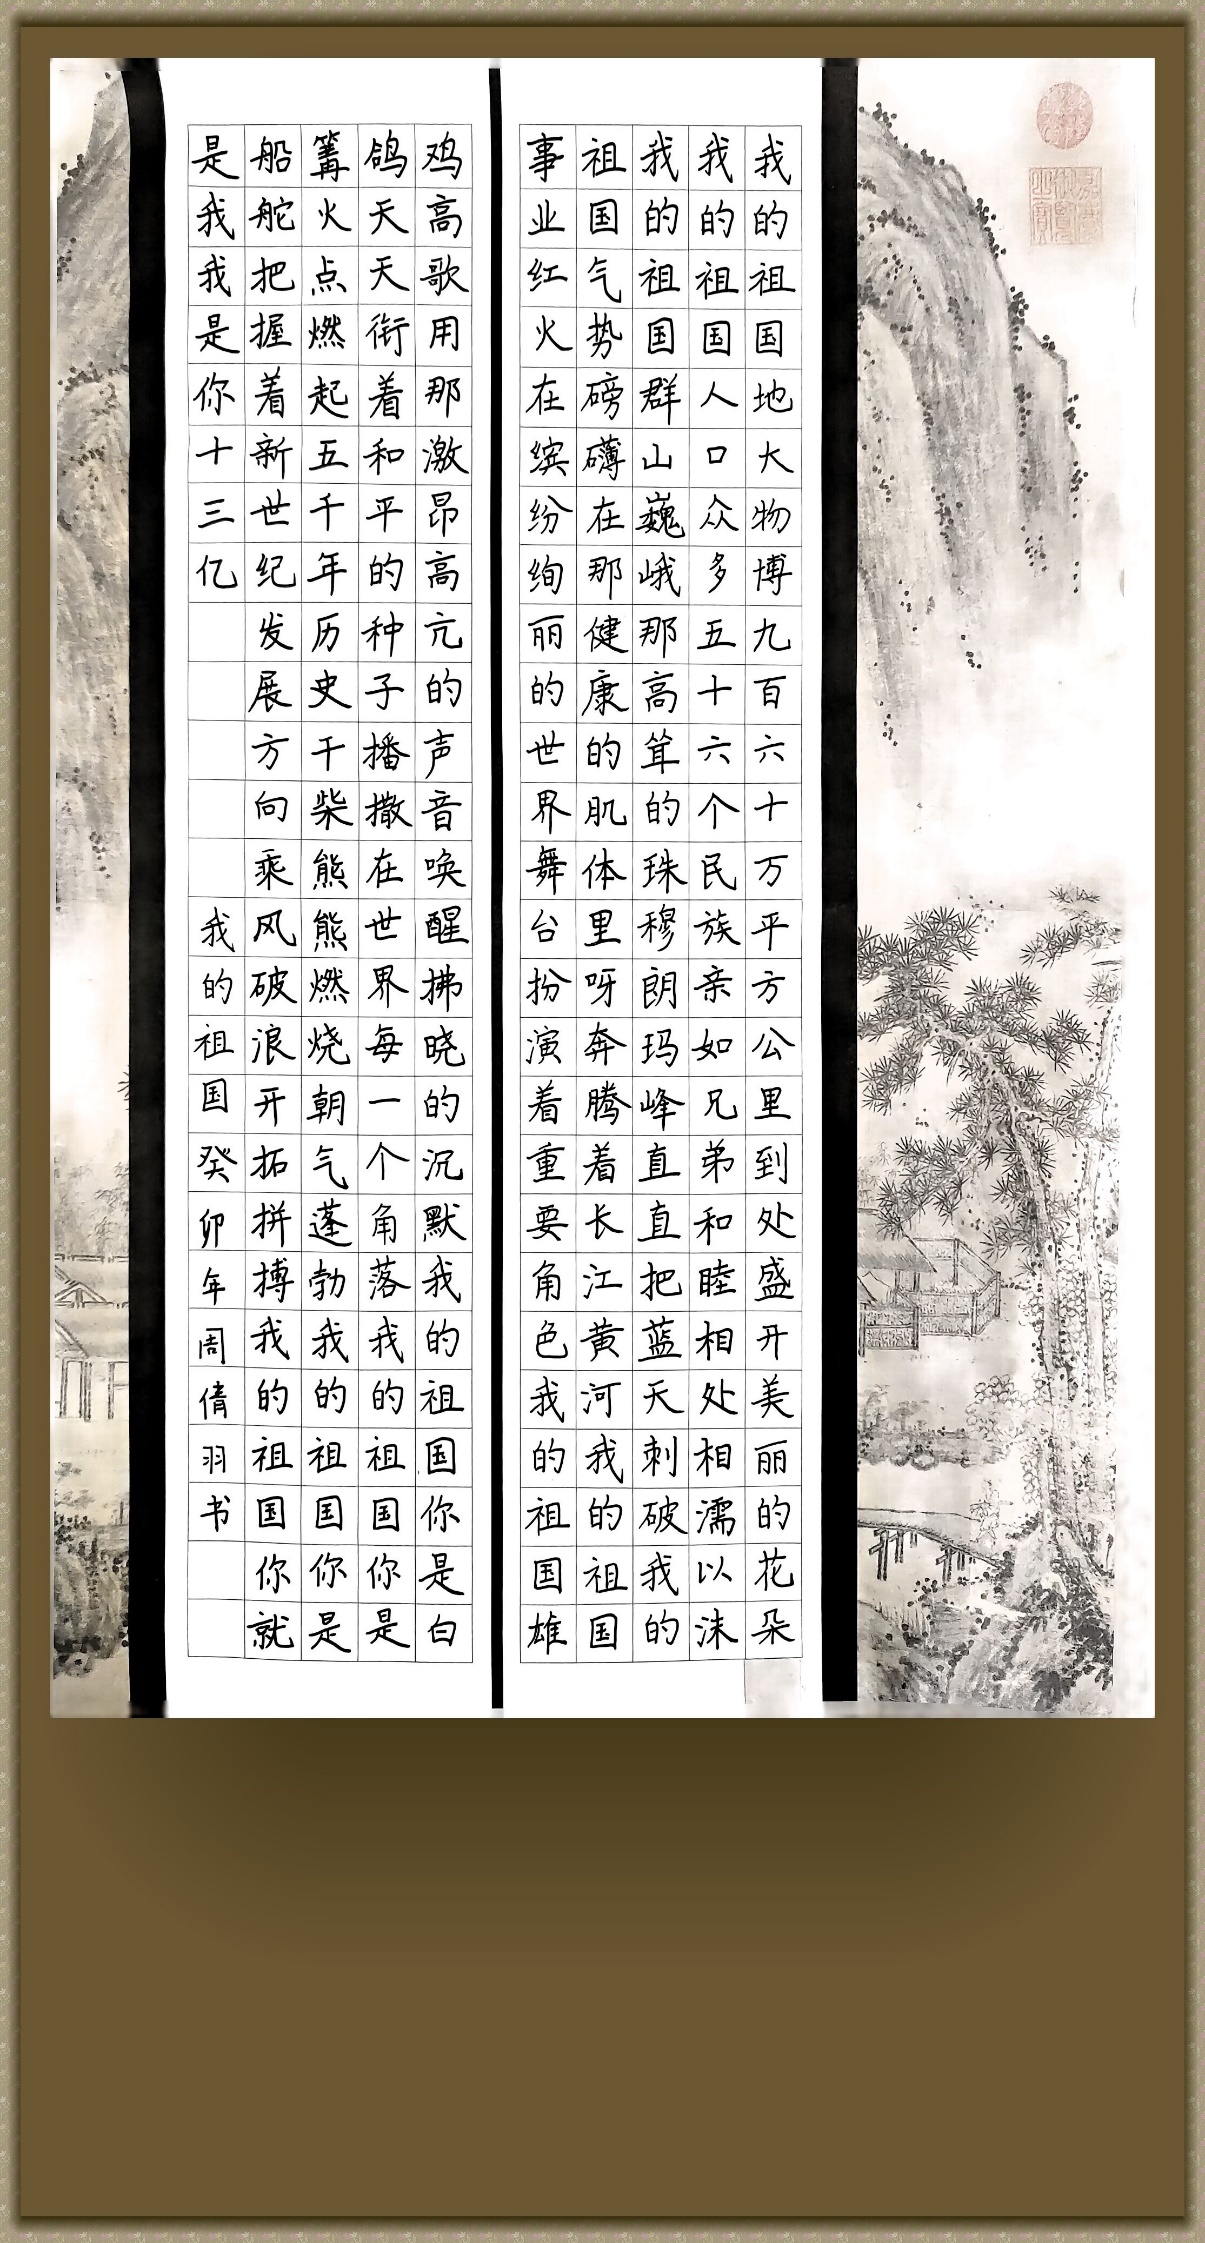 我的祖国地大物博九百六十万平方公里到处盛开美丽的花朵
我的祖国人口众多五十六个民族亲如兄弟和睦相处相濡以沫
我的祖国群山巍峨那高耸的珠穆朗玛峰直直把蓝天刺破我的
祖国气势磅礴在那健康的肌体里呀奔腾着长江黄河我的祖国
事业红火在缤纷绚丽的世界舞台扮演着重要角色我的祖国雄
鸡高歌用那激昂高亢的声音唤醒拂晓的沉默我的祖国你是白
鸽天天衔着和平的种子播撒在世界每一个角落我的祖国你是
篝火点燃起五千年历史干柴熊熊燃烧朝气蓬勃我的祖国你是
船舵把握着新世纪发展方向乘风破浪开拓拼搏我的祖国你就
是我我是你十三亿
我的祖国癸卯年周倩羽书